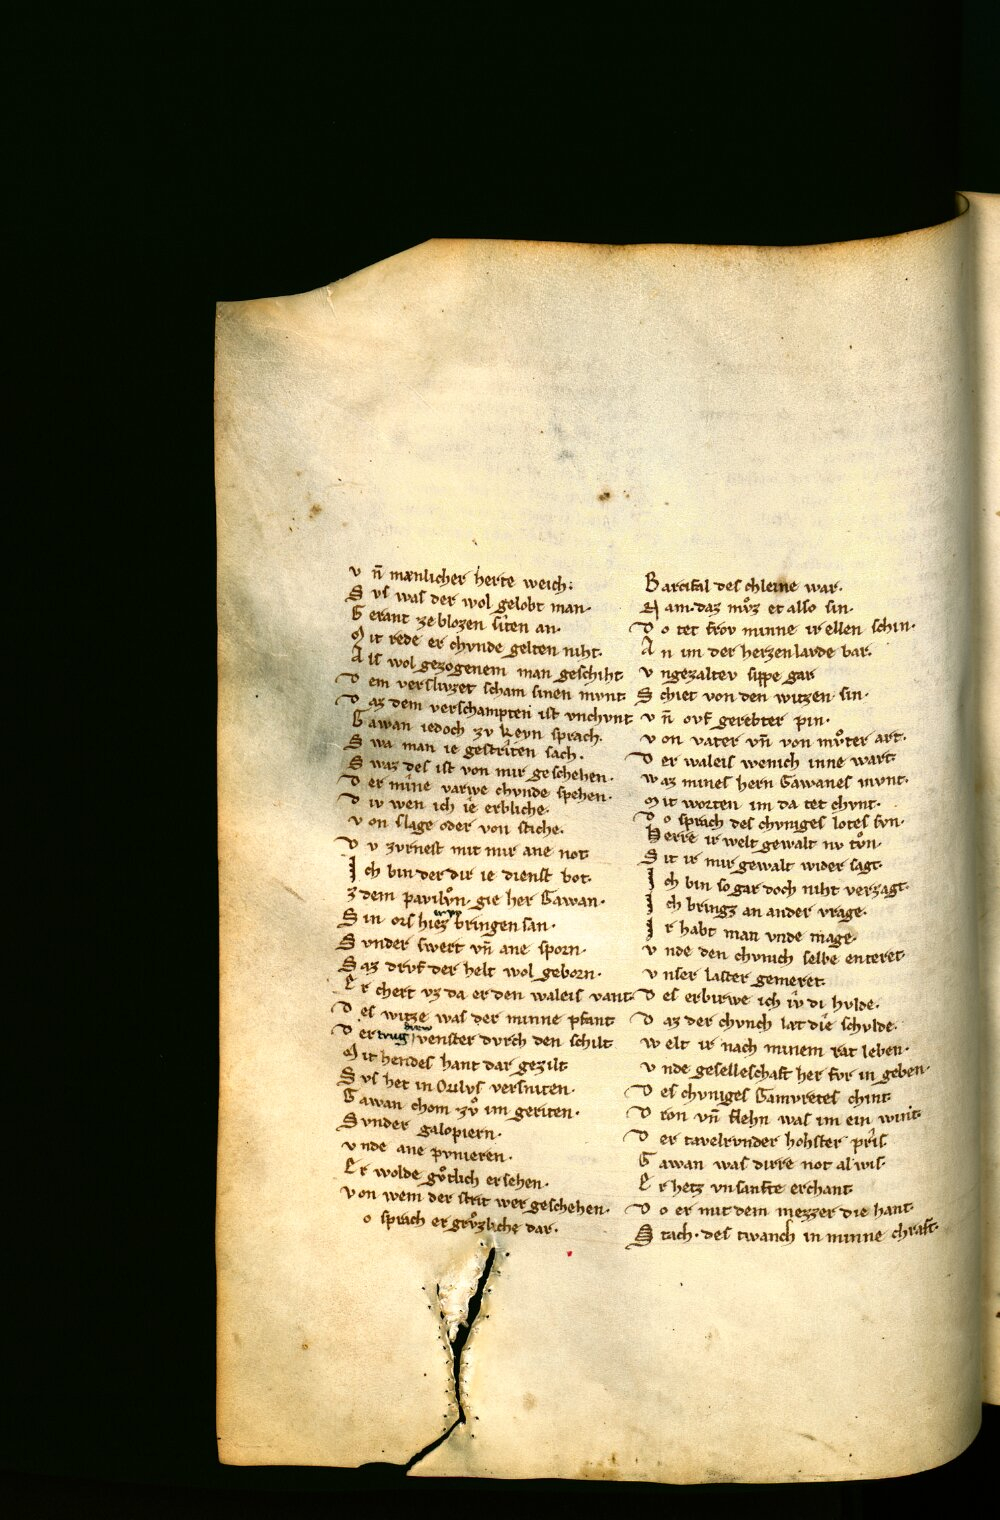 v n̄ mænlicher herte weich:
S vs was der wol gelobt man·
G erant ze blozen siten an·
M it rede er chvnde gelten niht·
A ls wol gezogenem man geschiht
D em verslivzet scham sinen mvnt·
D az dem verschampten ist vnchvnt
G awan iedoch zv keyn sprach·
S wa man ie gestriten sach·
S waz des ist von mir geschehen·
D er mine varwe chvnde spehen·
D iv wen ich ie erbliche·
v on slage oder von stiche·
D v zvrnest mit mir ane not
I ch bin der dir ie dienst bot·
z dem pavilvͦn· gie her Gawan·
S in ors hiez bringen san·
S vnder swert vn̄ ane sporn·
S az drvf der helt wol geborn·
E r chert vz da er den waleis vant·
D es witze was der minne pfant
D er trug driv venster dvrch den schilt
M it heldes hant dar gezilt
S vs het in Orilvs versniten·
G awan chom zvͦ im geriten·
S vnder galopiern·
v nde ane pvnieren·
E r wolde gvͦtlich ersehen·
v on wem der strit wer geschehen·
o sprach er grvͦzliche dar·
Barcifal des chleine war·
N am· daz mvͦz et also sin·
D o tet frov minne ir ellen schin·
A n im der herzenlavde bar·
v ngezaltev sippe gar
S chiet von den witzen sin·
v n̄ ovf gerebter pin·
v on vater vn̄ von mvͦter art·
D er waleis wenich inne wart·
w az mines hern Gawanes mvnt·
M it worten im da tet chvnt·
D o sprach des chvniges lotes svn·
Herre ir welt gewalt nv tvͦn·
S it ir mir gewalt wider sagt·
I ch bin so gar doch niht verzagt·
I ch bringz an ander vrage·
I r habt man vnde mage·
v nde den chvnich selbe enteret·
v nser laster gemeret·
D es erbirwe ich iv̂ di hvlde·
D az der chvnch læt die schvlde·
w elt ir nach minem rat leben·
v nde geselleschaft her fvr in geben·
D es chvniges Gamvretes chint
D ron vn̄ flehn was im ein wint·
D er tavelrvnder hohster pris
G awan was dirre not al wis·
E r hetz vnsanfte erchant
D o er mit dem mezzer die hant·
S tach· des twanch in minne chraft·